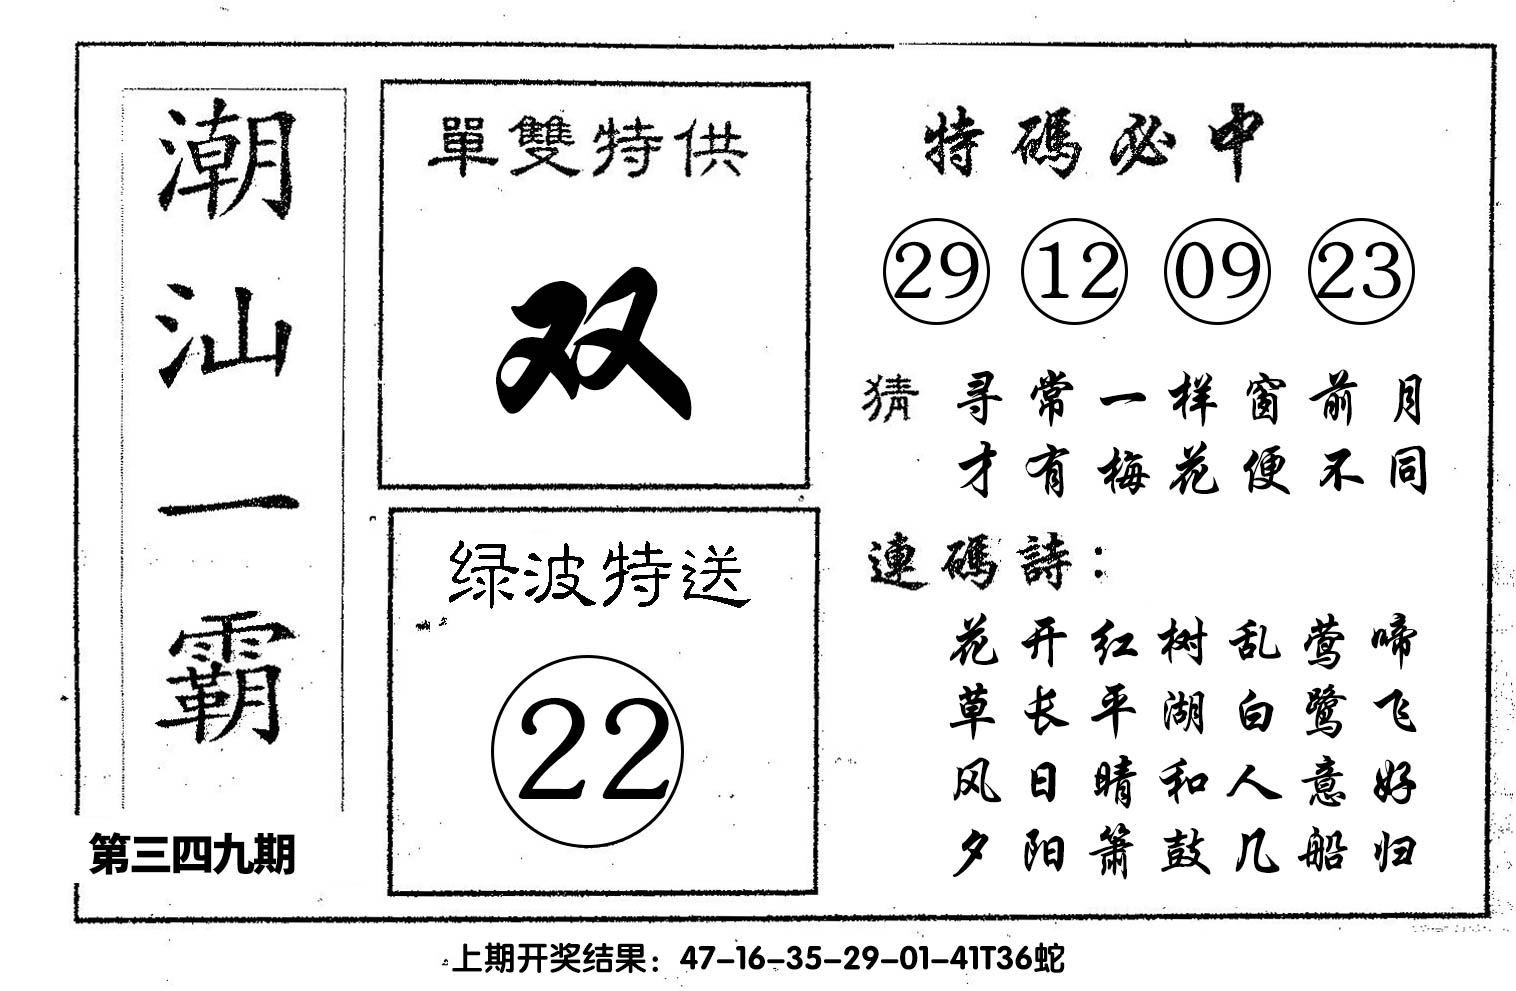 潮汕一霸
第三四九期
單雙特供
双
绿波特送
22
特碼必中
29 12 09 23
猜 寻常一样窗前月
才有梅花便不同
連碼詩：
花开红树乱莺啼
草长平湖白鹭飞
风日晴和人意好
夕阳箫鼓几船归
上期开奖结果：47-16-35-29-01-41T36蛇